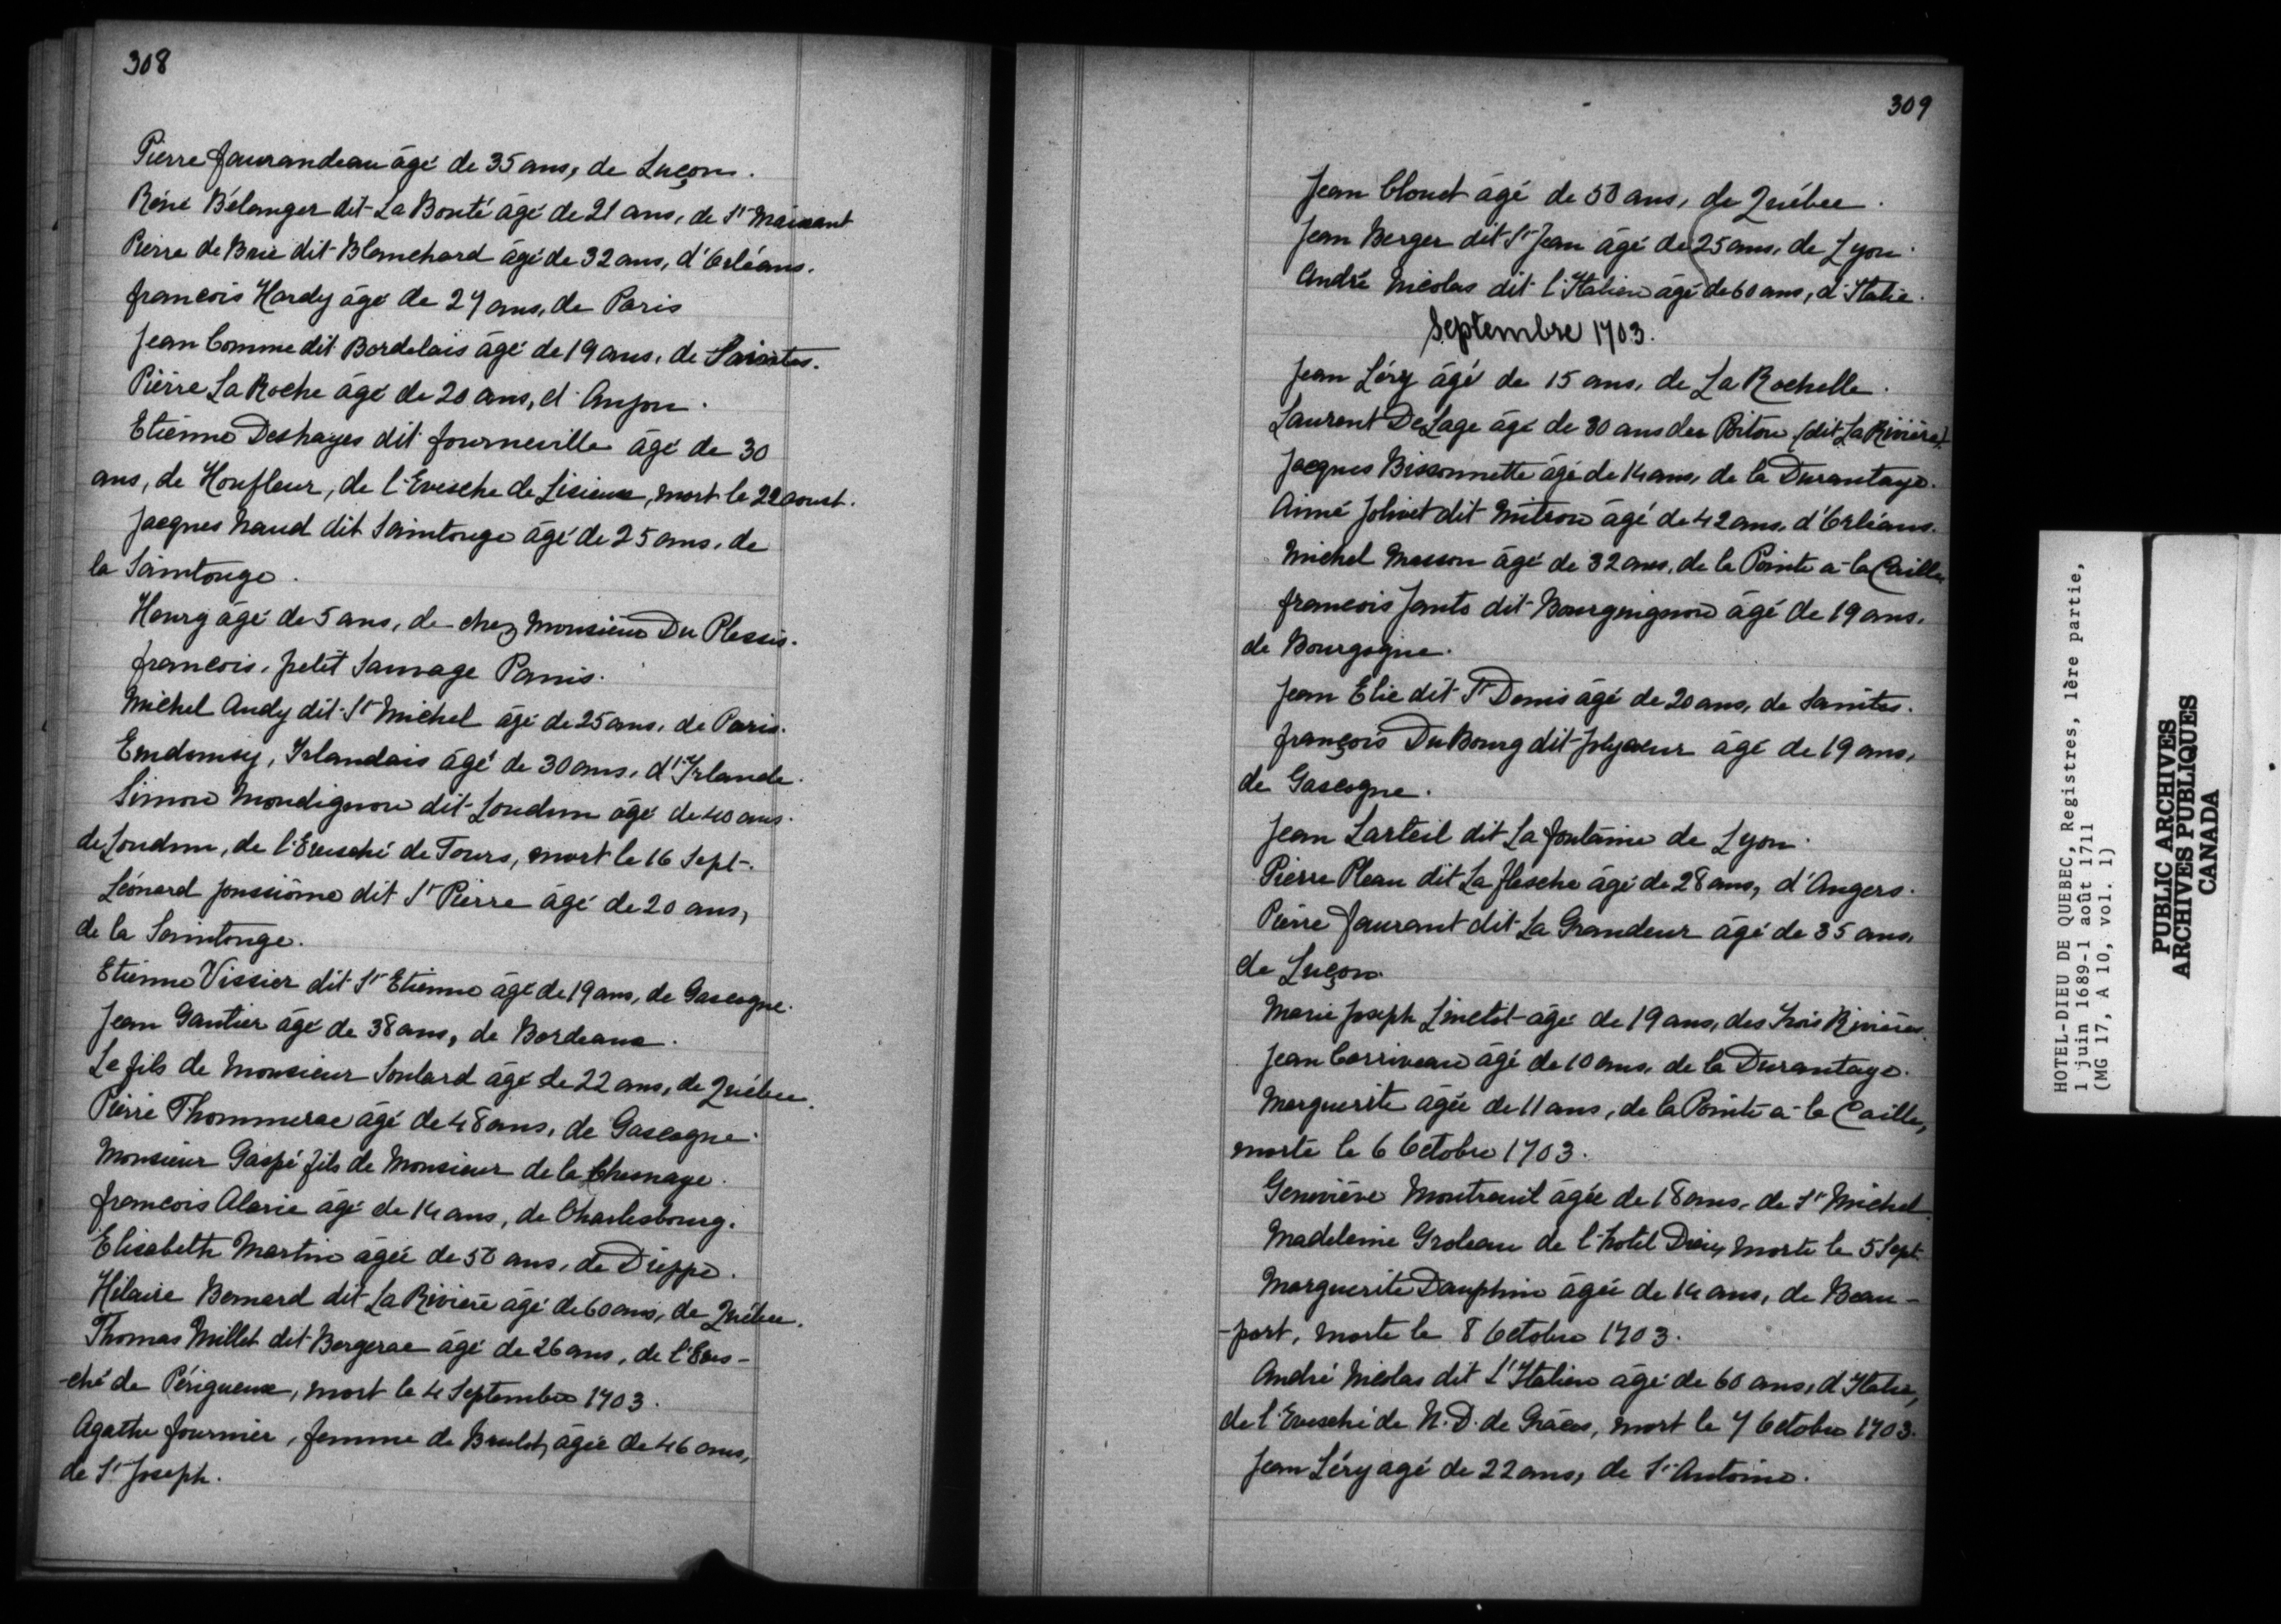 308
Pierre Faurandeau âgé de 35 ans, de Luçon.
Réné Bélanger dit La Bonté âgé de 21 ans, de St Maixant
Pierre de Brie dit Blanchard âgé de 32 ans, d'Orléans.
francois Hardy âgé de 27 ans, de Paris
Jean Comme dit Bordelais âgé de 19 ans, de Saintes.
Pierre La Roche âgé de 20 ans, d'Anjou.
Etienne Deshayes dit fourneville âgé de 30
ans, de Honfleur, de l'Evesche de Lisieux, mort le 22 aoust.
Jacques Naud dit Saintonge âgé de 25 ans, de
la Saintonge.
Henry âgé de 5 ans, de chez Monsieur Du Plessis.
francois, petit Sauvage Panis.
Michel Andy dit St Michel âgé de 25 ans, de Paris.
Irlandais âgé de 30 ans, d'Irlande.
Simon Mondignon dit Loudun âgé de 40 ans.
de Loudun, de l'Evesché de Tours, mort le 16 Sept.
Léonard dit St Pierre âgé de 20 ans,
de la Saintonge.
Etienne Vissier dit St Etienne âgé de 19 ans, de Gascogne.
Jean Gautier âgé de 38 ans, de Bordeaux.
Le fils de Monsieur Soulard âgé de 22 ans, de Québec.
Pierre Thommerac âgé de 48 ans, de Gascogne.
Monsieur Gaspé fils de Monsieur de la Chesnaye.
francois Alarie âgé de 14 ans, de Charlesbourg.
Elisabeth Martin âgée de 50 ans, de Dieppe.
Hilaire Bernard dit La Rivière âgé de 60 ans, de Québec.
Thomas Millet dit Bergerac âgé de 26 ans, de l'Eves-
-ché de Périgueux, mort le 4 Septembre 1703.
Agathe fournier, femme de Brulot, âgée de 46 ans,
de St Joseph.
309
Jean Clouet âgé de 50 ans, de Québec.
Jean Berger dit St Jean âgé de 25 ans, de Lyon.
André Nicolas dit l'Italien âgé de 60 ans, d'Italie.
Septembre 1703.
Jean Léry âgé de 15 ans, de La Rochelle.
Laurent DeLage âgé de 30 ans des Poitou (dit La Rivière).
Jacques Bissonnette âgé de 14 ans, de la Durantaye.
Aimé Jolivet dit Mitron âgé de 42 ans, d'Orléans.
Michel Masson âgé de 32 ans, de la Pointe à la Caille
francois Jants dit Bourguignon âgé de 19 ans,
de Bourgogne.
Jean Elie dit St Denis âgé de 20 ans, de Saintes.
françois DuBourg dit Jolycœur âgé de 19 ans,
de Gascogne.
Jean Larteil dit La fontaine de Lyon.
Pierre Pleau dit La flesche âgé de 28 ans, d'Angers.
Pierre Faurant dit La Grandeur âgé de 35 ans,
de Luçon.
Marie Joseph Linctôt âgé de 19 ans, des Trois Rivières.
Jean Corriveau âgé de 10 ans, de la Durantaye.
Marguerite âgée de 11 ans, de la Pointe à la Caille,
morte le 6 Octobre 1703.
Geneviève Montreuil âgée de 18 ans, de St Michel.
Madeleine Groleau de l'hotel Dieu, morte le 5 Sept.
Marguerite Dauphin âgée de 14 ans, de Beau-
-port, morte le 8 Octobre 1703.
André Nicolas dit L'Italien âgé de 60 ans, d'Italie,
de l'Evesché de N. D. de Grâces, mort le 7 Octobre 1703.
Jean Léry agé de 22 ans, de St Antoine.
HOTEL-DIEU DE QUEBEC, Registres, 1ère partie,
1 juin 1689-1 août 1711
(MG 17, A 10, vol. 1)
PUBLIC ARCHIVES
ARCHIVES PUBLIQUES
CANADA